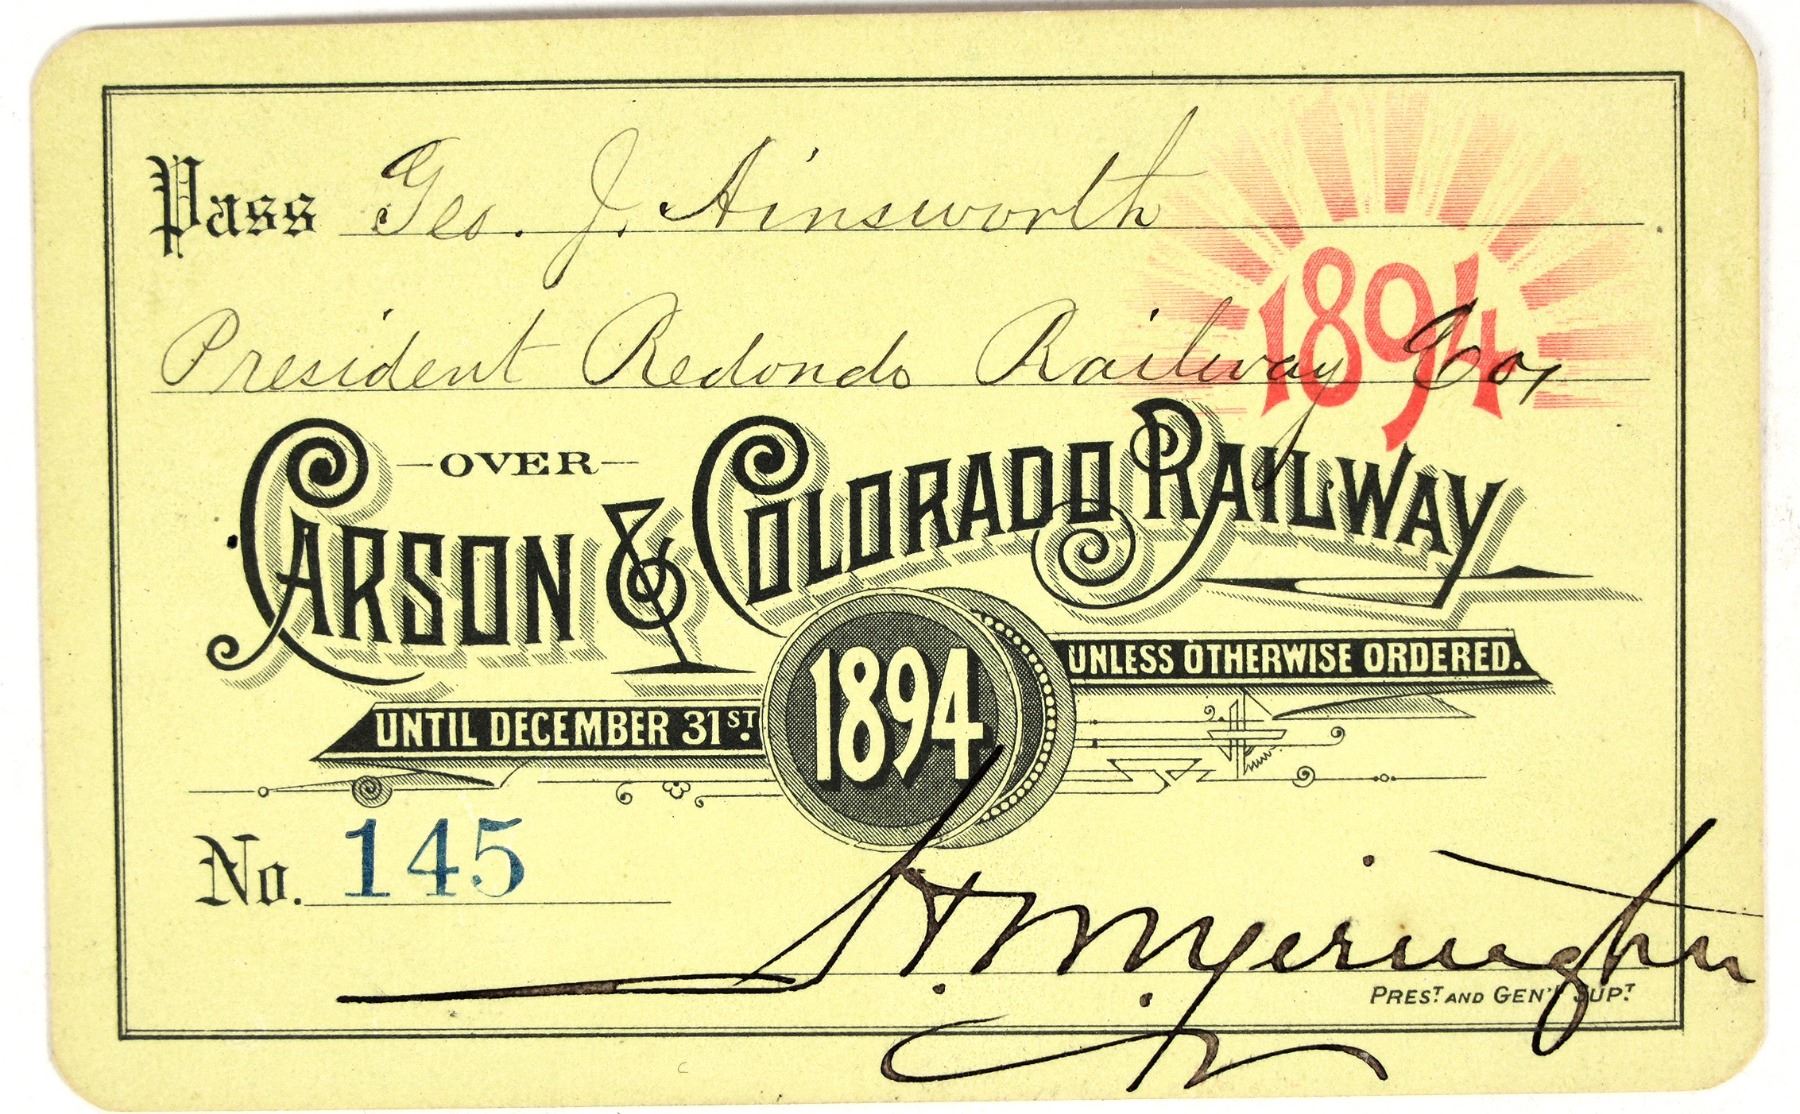 Pass Geo. J. Ainsworth
1894
President Redondo Railway Co,
OVER
CARSON & COLORADO RAILWAY
UNLESS OTHERWISE ORDERED.
UNTIL DECEMBER 31ST.
1894
No. 145
H M Yerington
PREST. AND GEN'L SUPT.